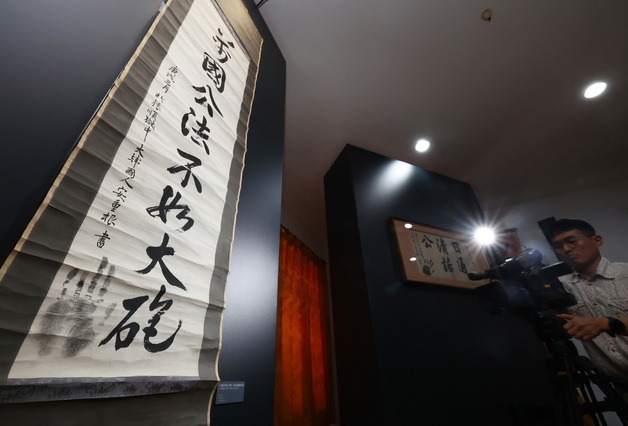 萬國公法不如大砲
庚戌三月 於旅順獄中 大韓國人 安重根 書
日通
清話
公